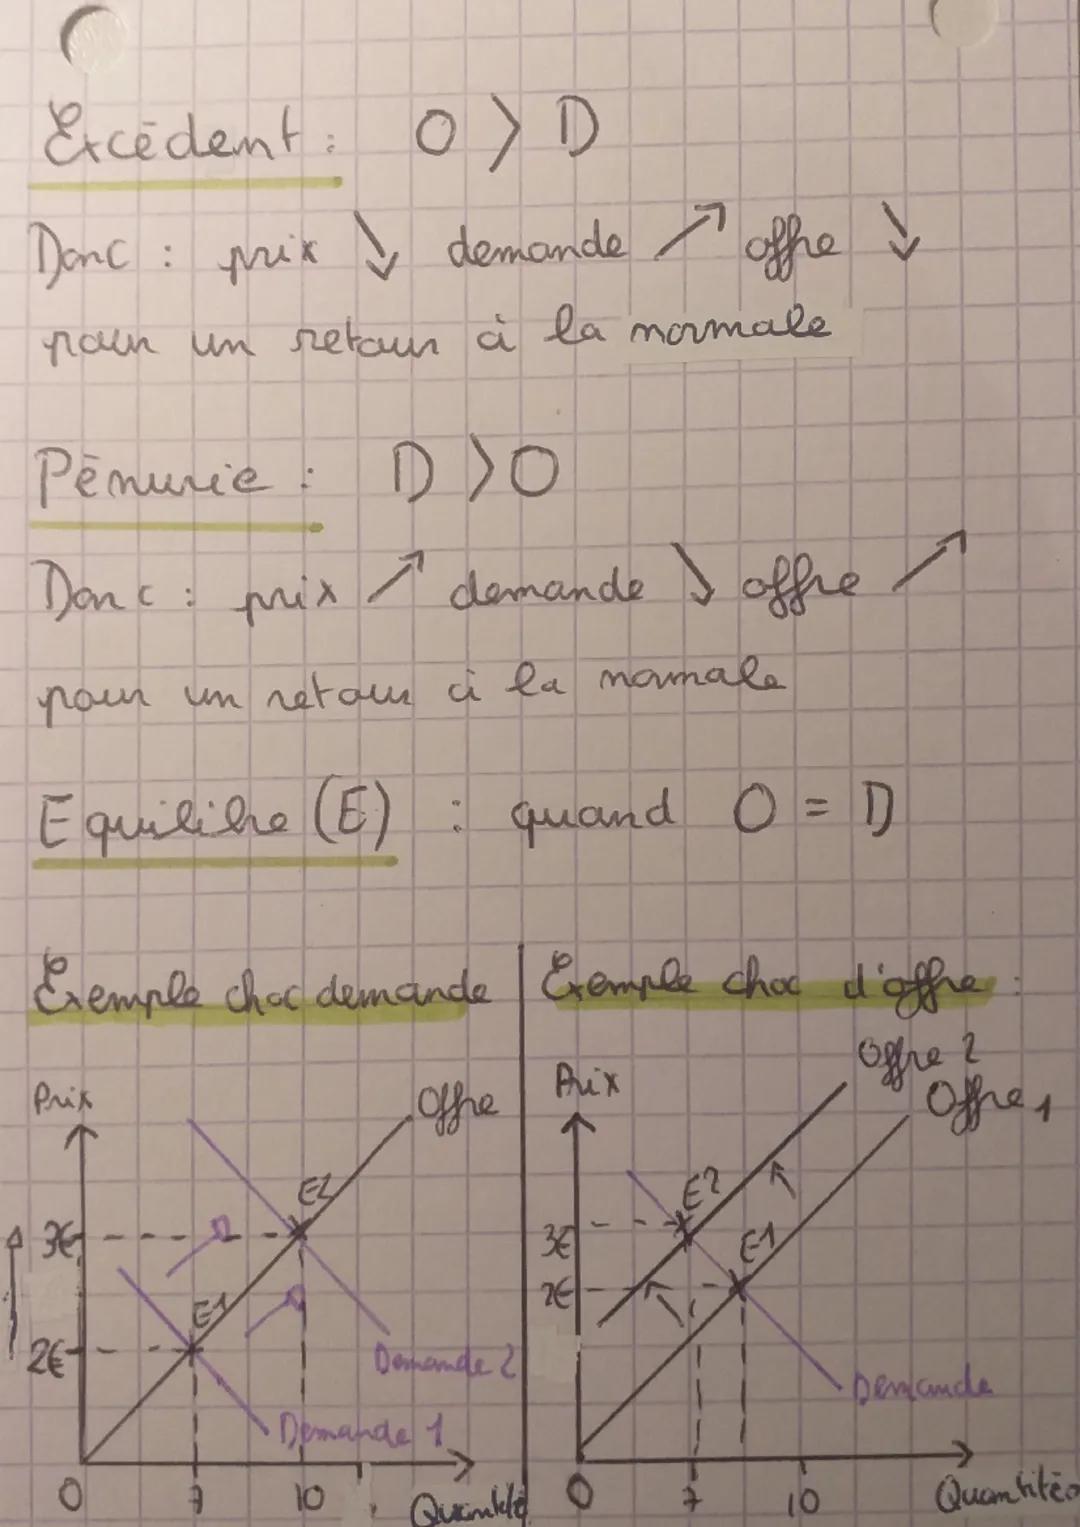 Excédent : O > D
Donc : prix ↘ demande ↗ offre ↘
pour un retour à la normale
Pénurie : D > O
Donc : prix ↗ demande ↘ offre ↗
pour un retour à la normale
Equilibre (E) : quand O = D
Exemple choc demande
Prix
Offre
E2
3€
E1
2€
Demande 2
Demande 1
0 7 10 Quantité
Exemple choc d'offre :
Offre 2
Prix
Offre 1
E2
3€
E1
2€
Demande
0 7 10 Quantités